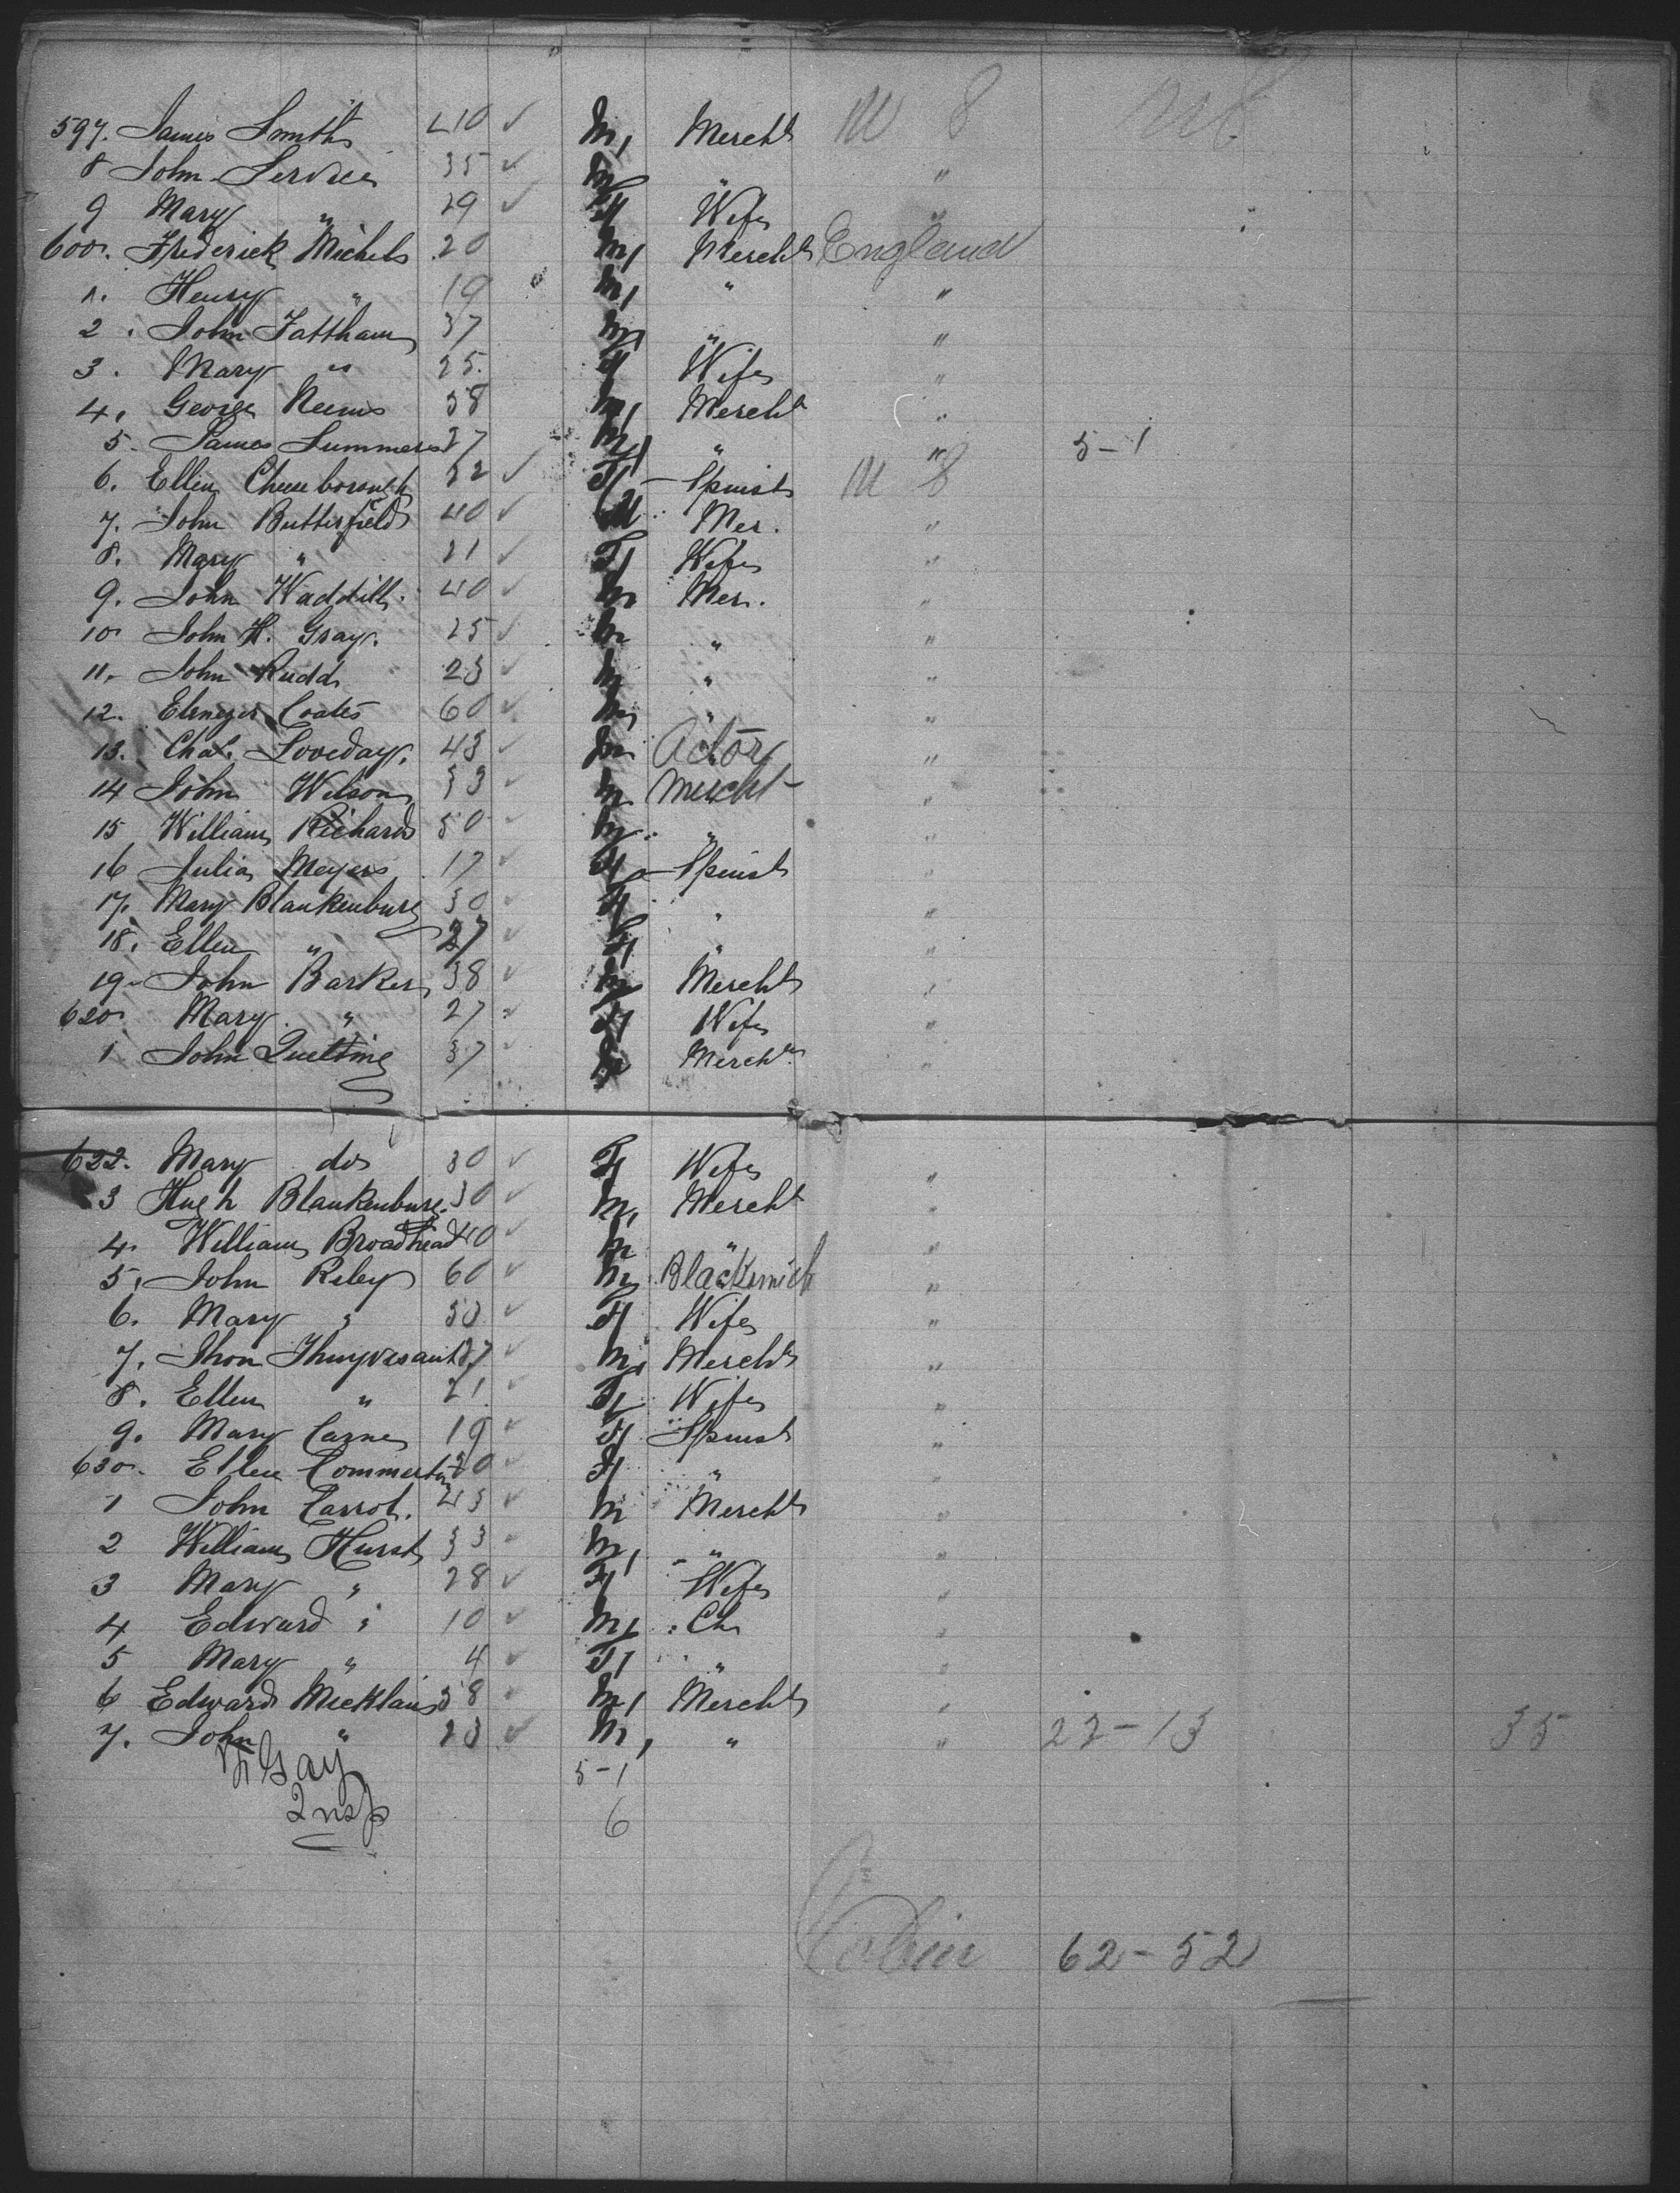 597. James Smith 40 ✓ M, Mercht U S
8 John Service 35 ✓ M " "
9 Mary " 29 ✓ F Wife "
600. Frederick Michels 20 M, Mercht England
1. Henry " 19 M, " "
2. John Tattham 37 M " "
3. Mary " 25. F Wife "
4. George Neems 38 M, Mercht "
5. James Summers 27 M " " 5-1
6. Ellen Cheeseborough 22 ✓ F Spinst U S
7. John Butterfield 40 ✓ M Mer. "
8. Mary " 21 ✓ F Wife "
9. John Waddill. 40 ✓ M Mer. "
10 John H. Gray. 25 ✓ M " "
11. John Rudd 23 ✓ M " "
12. Ebnezer Coates 60 ✓ M " "
13. Chas. Loveday. 43 ✓ M Actor "
14 John Wilson 33 ✓ M Mercht "
15 William Richards 50 ✓ M " "
16 Julia Meyers 17 ✓ F Spinst "
17. Mary Blankenburg 30 ✓ F " "
18. Ellen " 27 ✓ F " "
19. John Barker 38 ✓ M Mercht "
620. Mary " 27 ✓ F Wife "
1 John Quelting 37 ✓ M Mercht "
622. Mary do 30 ✓ F Wife "
3 Hugh Blankenburg. 30 ✓ M, Mercht "
4. William Broadhead 40 ✓ M " "
5. John Riley 60 ✓ M Blacksmith "
6. Mary " 50 ✓ F Wife "
7. Jhon Thuyvesant 27 ✓ M Mercht "
8. Ellen " 21 ✓ F Wife "
9. Mary Carne 19 ✓ F Spinst "
630. Ellen 20 ✓ F " "
1 John Carrol. 43 ✓ M Mercht "
2 William Hurst 33 ✓ M, " "
3 Mary " 28 ✓ F Wife "
4 Edward " 10 ✓ M Ch "
5 Mary " 4 ✓ F " "
6 Edward Micklain 58 ✓ M Mercht "
7. John " 23 ✓ M, " " 22-13 35
Gay 5-1
Insp 6
Cabin 62-52